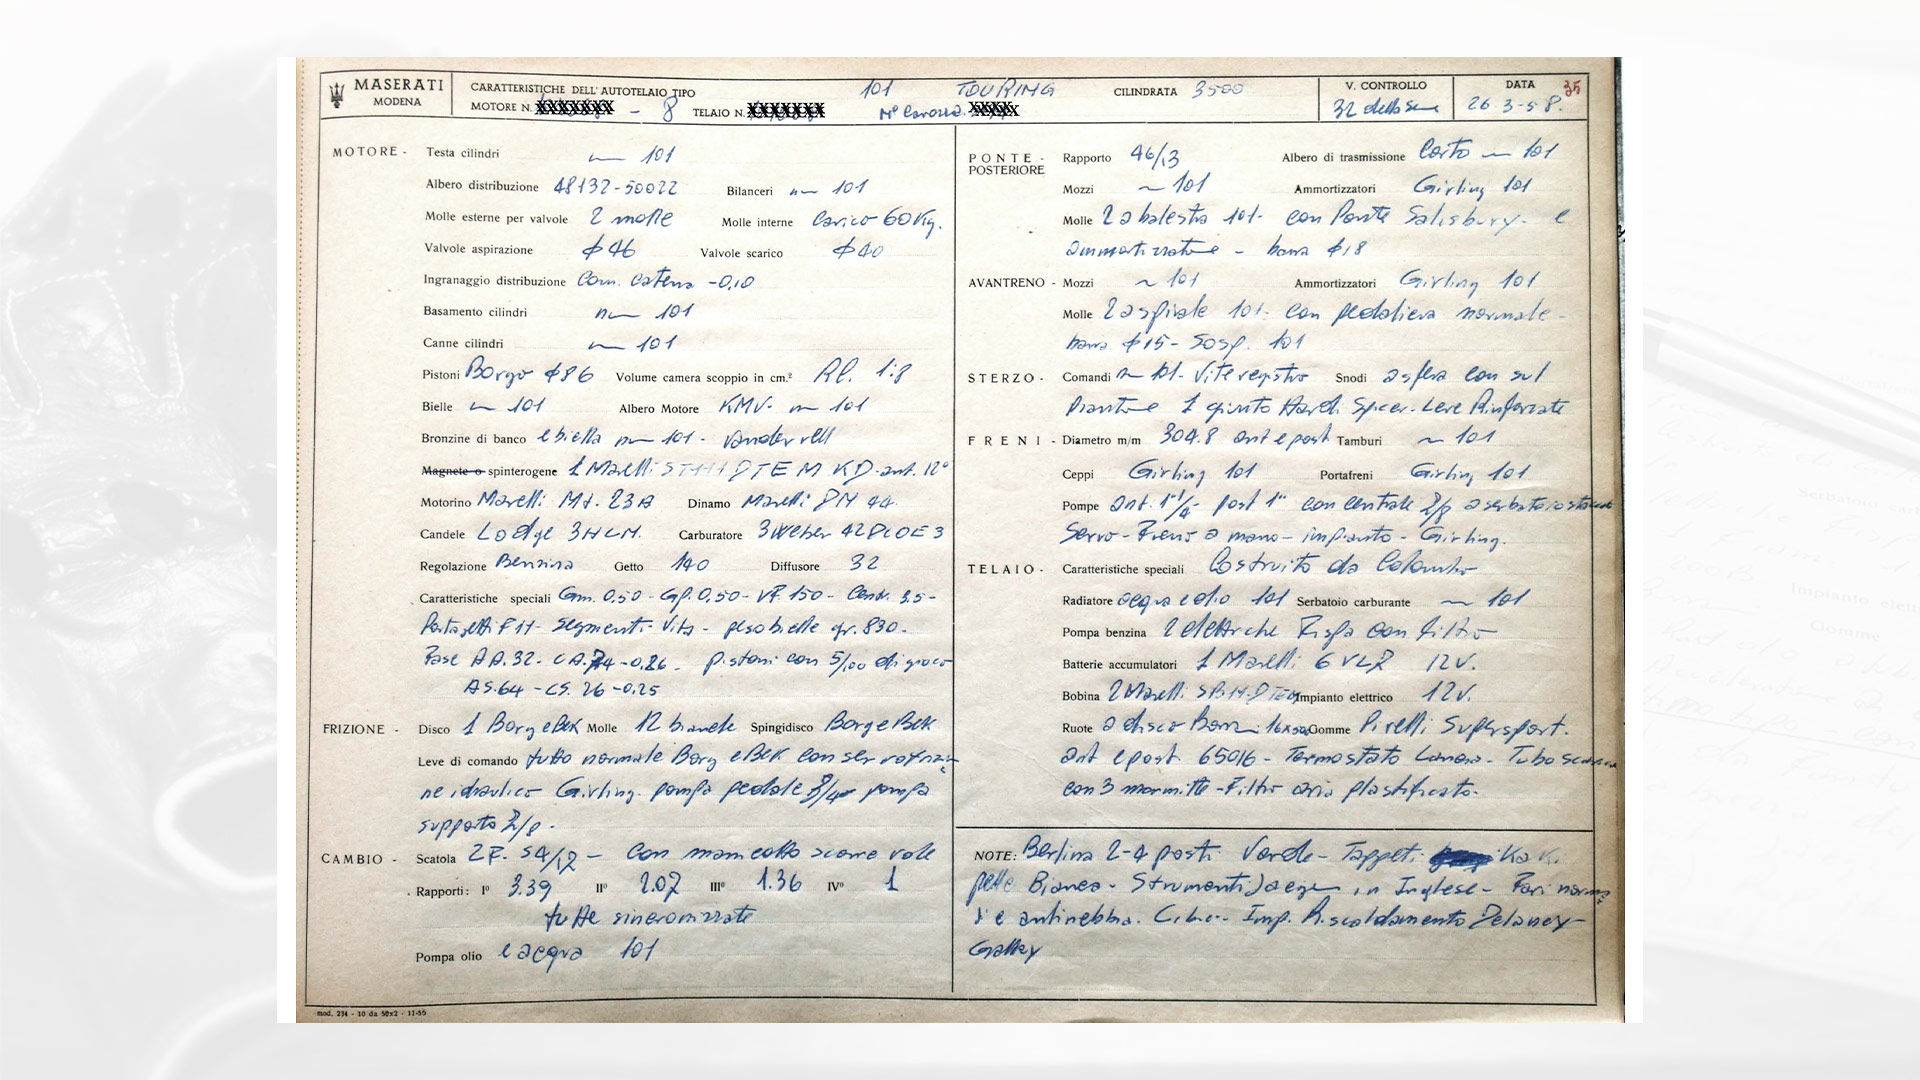 MASERATI
MODENA
CARATTERISTICHE DELL' AUTOTELAIO TIPO 101 TOURING CILINDRATA 3500
MOTORE N. - 8 TELAIO N. N°
V. CONTROLLO
32
DATA 35
26 3-58.
MOTORE - Testa cilindri 101
Albero distribuzione 48132-50022 Bilanceri 101
Molle esterne per valvole 2 molle Molle interne carico 60 Kg.
Valvole aspirazione φ 46 Valvole scarico φ 40
Ingranaggio distribuzione Com. catena -0,10
Basamento cilindri 101
Canne cilindri 101
Pistoni Borgo φ86 Volume camera scoppio in cm.³ 1:8
Bielle 101 Albero Motore KMV- 101
Bronzine di banco e biella 101 - Vandervell
Magnete o spinterogene 1 Marelli ant. 12°
Motorino Marelli Mt. 23A Dinamo Marelli DN 44
Candele Lodge 3HLN. Carburatore 3 Weber 42DCOE3
Regolazione Benzina Getto 140 Diffusore 32
Caratteristiche speciali Gm. 0,50 - Gp. 0,50 - 150 - 3.5 -
Portagetti F11 - segmenti - peso bielle gr. 830 -
Fase AA.32 - CA.74 -0,26 - pistoni con 5/100 di gioco
AS.64 - CS. 26 -0,25
FRIZIONE - Disco 1 Borg e Bek Molle 12 bianche Spingidisco Borg e Bek
Leve di comando tutto normale Borg e Bek con
ne idraulico Girling. pompa pedale pompa
supporto
CAMBIO - Scatola Z.F. S4/12 - con manicotto scorrevole
Rapporti: I° 3.39 II° 2.07 III° 1.36 IV° 1
tutte sincronizzate
Pompa olio e acqua 101
PONTE - POSTERIORE Rapporto 46/13 Albero di trasmissione Corto 101
Mozzi 101 Ammortizzatori Girling 101
Molle 2 a balestra 101 - con Ponte Salisbury - e
- barra φ18
AVANTRENO - Mozzi 101 Ammortizzatori Girling 101
Molle 2 a spirale 101 - con pedaliera normale -
barra φ15 - Sosp. 101
STERZO - Comandi 101 - Vite registro Snodi a sfera con sul
Piantone 1 giunto Hardi Spicer - Leve Rinforzate
FRENI - Diametro m/m 304.8 ant e post Tamburi 101
Ceppi Girling 101 Portafreni Girling 101
Pompe ant. 1"1/4 - post 1" con centrale a serbatoio
Servo - Freno a mano - impianto - Girling.
TELAIO - Caratteristiche speciali Costruito da Colombo
Radiatore acqua e olio 101 Serbatoio carburante 101
Pompa benzina 2 elettriche Fispa con filtro
Batterie accumulatori 1 Marelli 6 12V.
Bobina 2 Marelli Impianto elettrico 12V.
Ruote a disco 16x Gomme Pirelli Supersport.
ant e post 65016 - Termostato - Tubo
con 3 marmitte - Filtro aria plastificato -
NOTE: Berlina 2-4 posti Verde - Tappeti
pelle Bianca - Strumenti Jaeger in Inglese - Fari
e antinebbia. - Imp. Riscaldamento Delaney -
Gallay
mod. 234 - 10 da 50x2 - 11-55